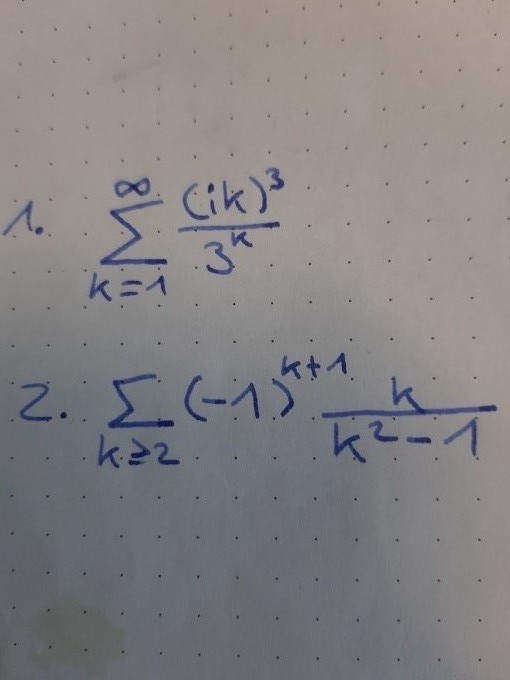 1. \sum_{k=1}^{\infty} \frac{(ik)^3}{3^k}
2. \sum_{k \geq 2} (-1)^{k+1} \frac{k}{k^2-1}